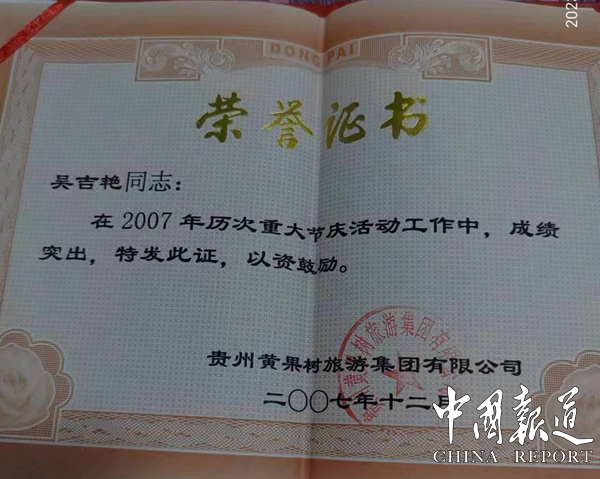 DONG PAI
荣誉证书
吴吉艳同志：
在 2007 年历次重大节庆活动工作中，成绩
突出，特发此证，以资鼓励。
贵州黄果树旅游集团有限公司
二〇〇七年十二月
中國報道
CHINA REPORT